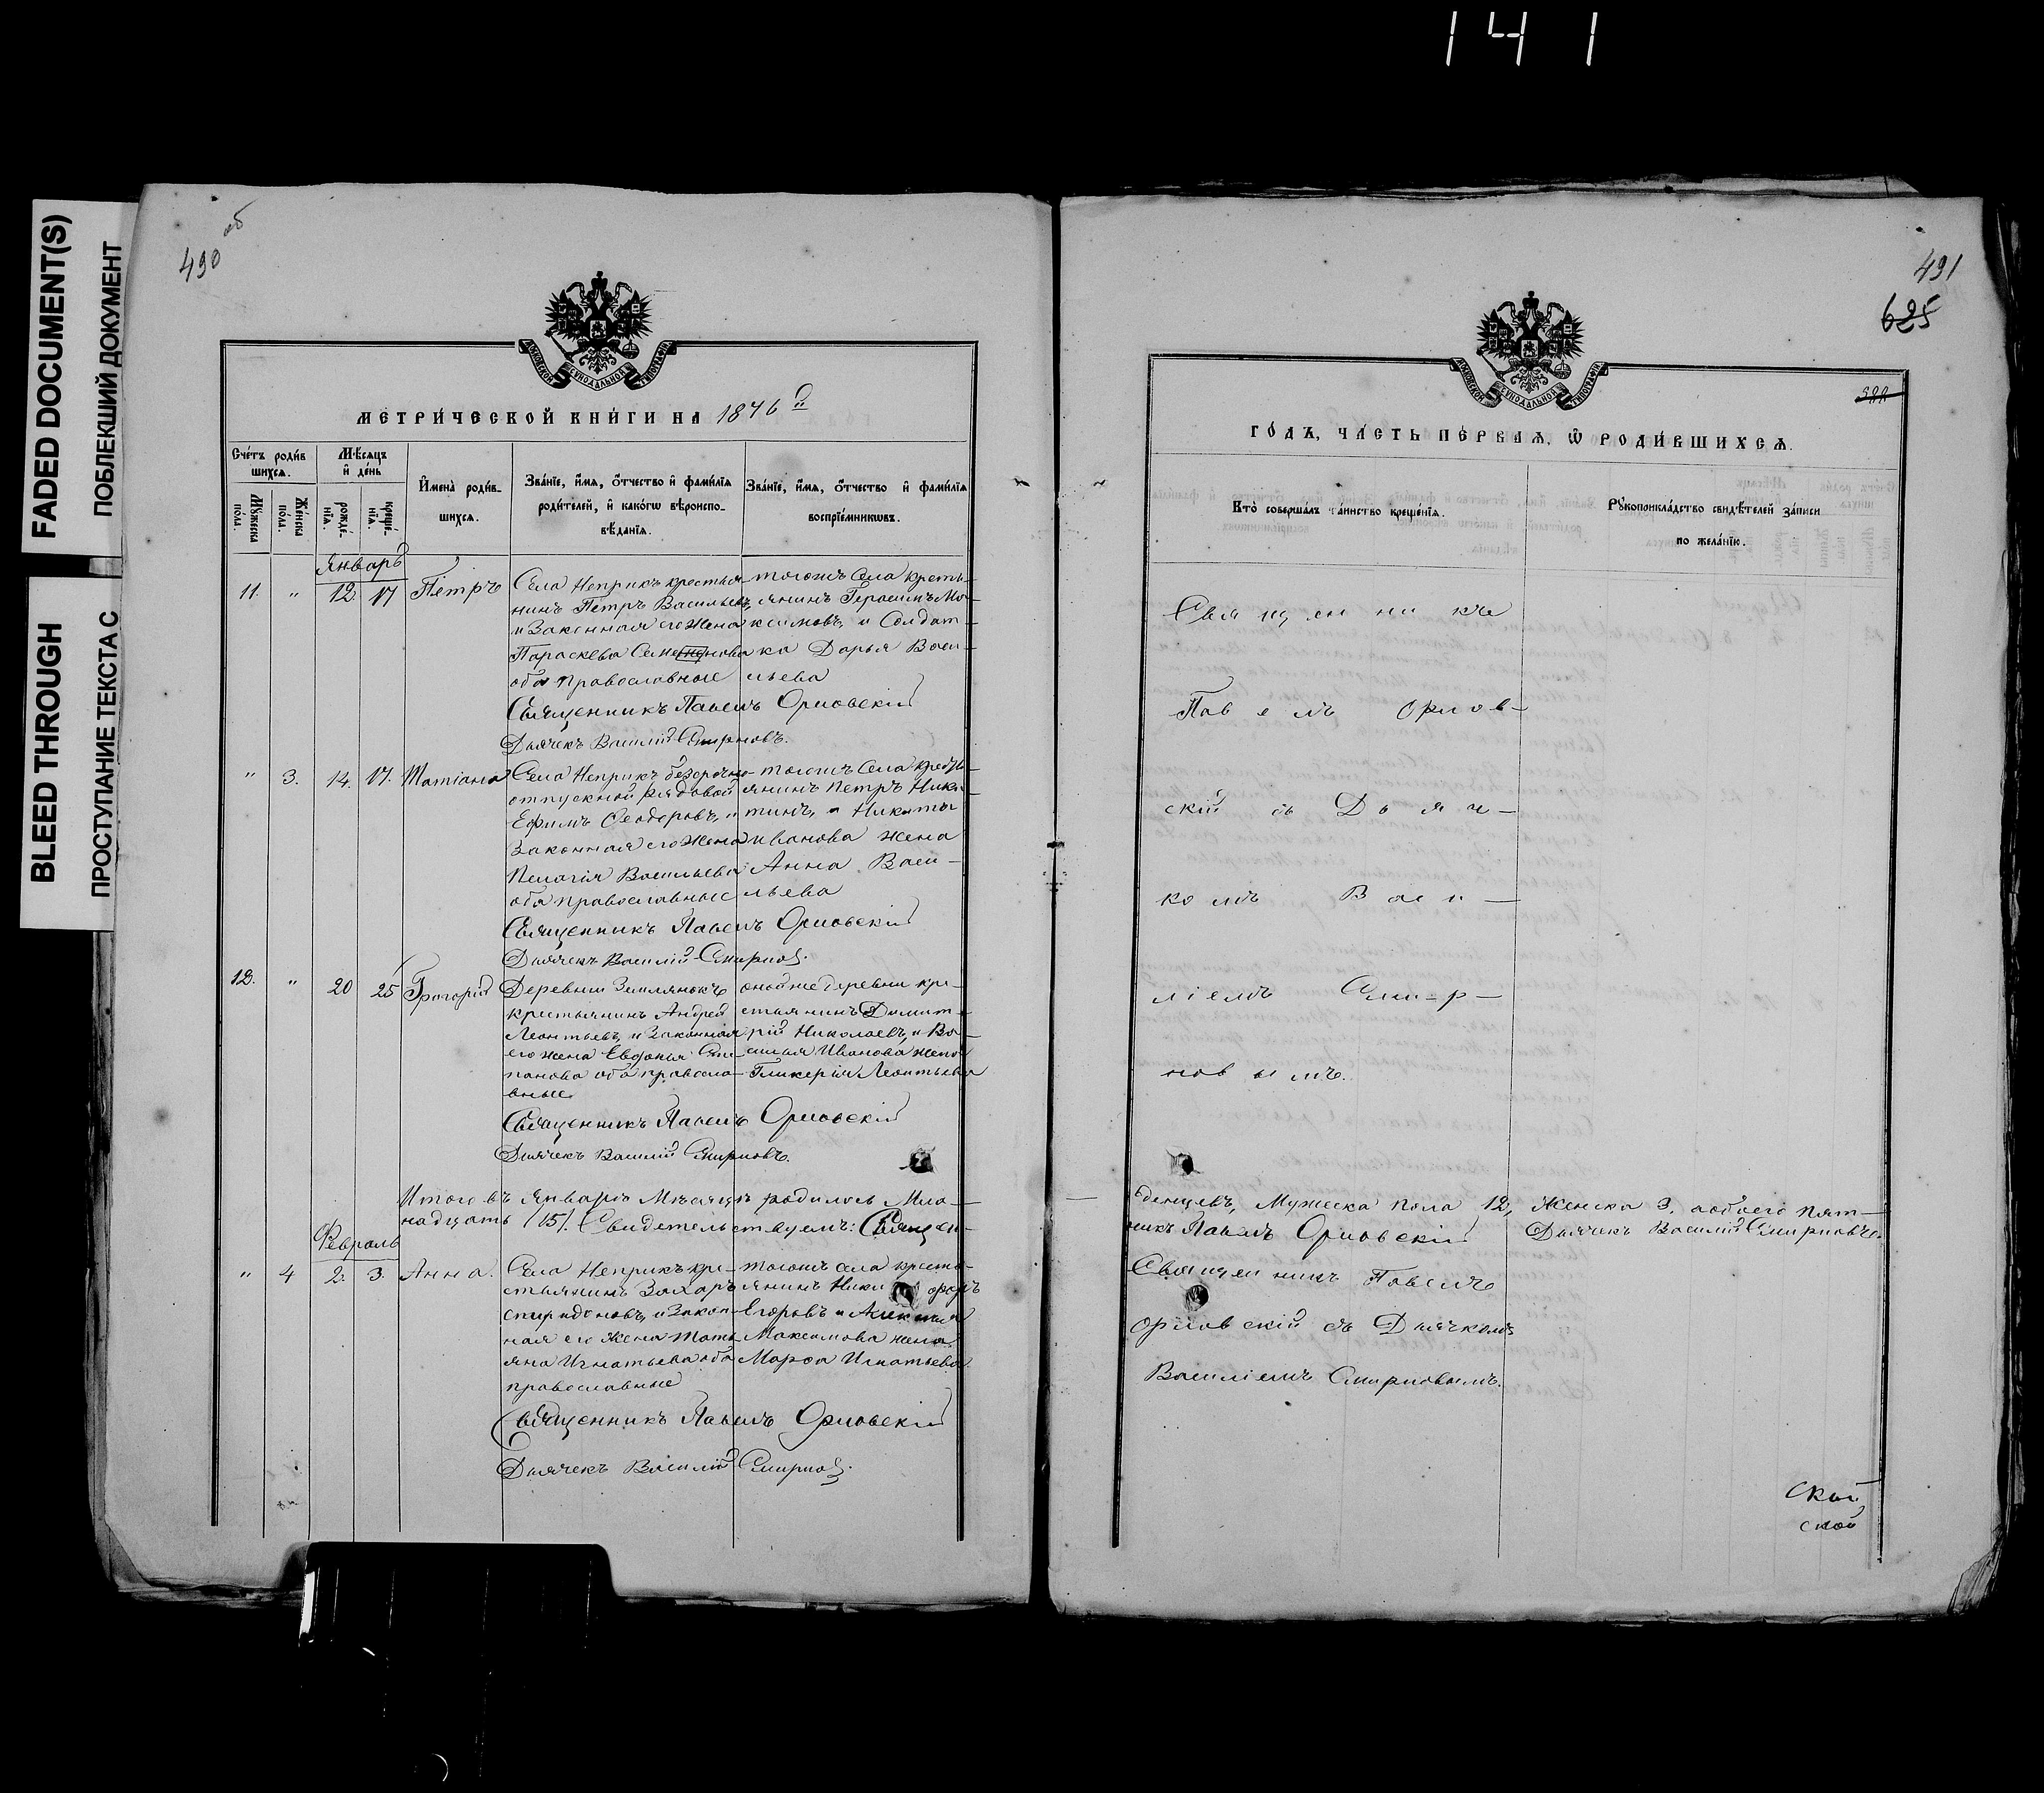 141
FADED DOCUMENT(S)
ПОБЛЕКШИЙ ДОКУМЕНТ
BLEED THROUGH
ПРОСТУПАНИЕ ТЕКСТА С
490 об
МОСКОВСКОЙ СѴНОДАЛЬНОЙ ТИПОГРАФІИ
МЕТРИ́ЧЕСКОЙ КНИ́ГИ НА 1876 й
Сче́тъ роди́вшихся.
Му́жеска по́ла.
Же́нска по́ла.
Мѣ́сяцъ и҆ де́нь
рожде́нїя.
креще́нїя.
И҆мена̀ роди́вшихся.
Зва́нїе, и҆́мя, ѻ҆́тчество и҆ фами́лїя родителей, и҆ како́гѡ вѣроисповѣ́данїя.
Зва́нїе, и҆́мя, ѻ҆́тчество и҆ фами́лїя воспрїе́мникѡвъ.
Январь
11. " 12 17 Петръ
Села Неприкъ крестья-
нинъ Петръ Васильевъ,
и Законная его Жена
Параскева Семененова
оба православные
тогожъ Села кресть-
янинъ Герасимъ Ма-
ксимовъ, и Солдат-
ка Дарья Васи-
льева
Священникъ Павелъ Орловскій
Дьячекъ Василій Смирновъ.
" 3. 14. 17. Татіана
Села Неприкъ безсрочно-
отпускной рядовой
Ефимъ Феодоровъ, и
Законная его Жена
Пелагія Васильева
оба православные
тогожъ Села кресть-
янинъ Петръ Ники-
тинъ, и Никиты
Иванова жена
Анна Васи-
льева
Священникъ Павелъ Орловскій
Дьячекъ Василій Смирнов.
12. " 20 25 Григорій
Деревни Землянокъ
крестьянинъ Андрей
Леонтьевъ, и Законная
его жена Евдокія Сте-
панова оба правосла-
вные
оной же деревни кре-
стьянинъ Димит-
рій Николаевъ, и Ва-
силья Иванова жена
Гликерія Леонтьева
Священникъ Павелъ Орловскій
Дьячекъ Василій Смирновъ.
Итого въ Январѣ Мѣсяцѣ родилось Мла-
надцать (15). Свидетельствуемъ: Священ-
Февраль
" 4 2. 3. Анна.
Села Неприкъ кре-
стьянинъ Захаръ
Спиридоновъ, и Закон-
ная его Жена Тать-
яна Игнатьева оба
православные
тогожъ села кресть-
янинъ Ники форъ
Егоровъ и
Максимова жена
Марфа Игнатьева
Священникъ Павелъ Орловскій
Дьячекъ Василій Смирнов.
491
625
МОСКОВСКОЙ СѴНОДАЛЬНОЙ ТИПОГРАФІИ
ГО́ДЪ, ЧА́СТЬ ПЕ́РВАЯ, Ѽ РОДИ́ВШИХСЯ.
Кто̀ соверша́лъ та́инство креще́нїя.
Рꙋкоприкла́дство свидѣ́телей за́писи по жела́нїю.
Священникъ
Павелъ Орлов-
скій съ Дьяч-
комъ Васи-
ліемъ Смир-
новымъ.
денцевъ, Мужеска пола 12, Женска 3. а обоего пят-
никъ Павелъ Орловскій Дьячекъ Василій Смирновъ.
Священникъ Павелъ
Орловскій съ Дьячкомъ
Василіемъ Смирновымъ.
ской